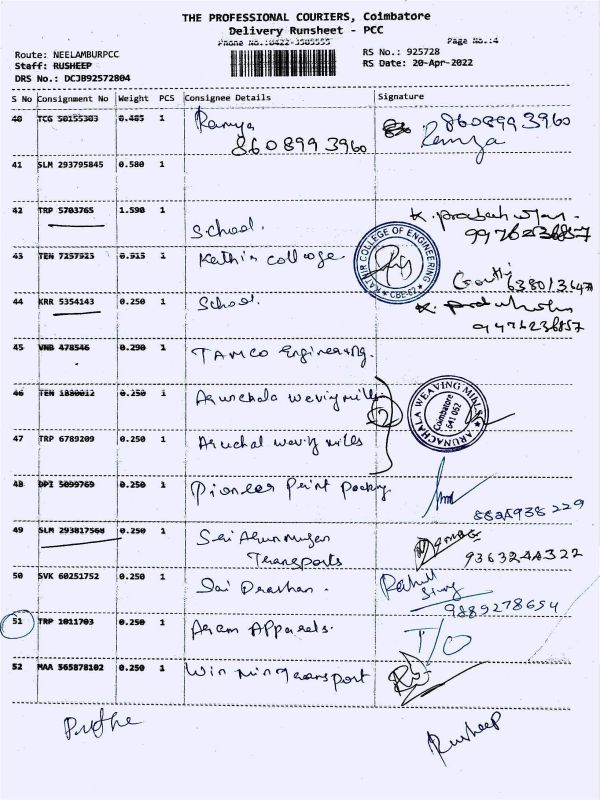 THE PROFESSIONAL COURIERS, Coimbatore
Delivery Runsheet - PCC
Phone No.:0422-3505555 Page No.:4
Route: NEELAMBURPCC RS No.: 925728
Staff: RUSHEEP RS Date: 20-Apr-2022
DRS No.: DCJB92572804
S No Consignment No Weight PCS Consignee Details Signature
40 TCG 50155303 0.485 1 Ramya 8608993960
8608993960 Ramya
41 SLM 293795845 0.580 1
42 TRP 5703765 1.590 1 School.
43 TEN 7257925 0.915 1 Kathir college
KATHIR COLLEGE OF ENGINEERING
CBE-62
44 KRR 5354143 0.250 1 School.
45 VNB 478546 0.290 1 TAMCO Engineering.
46 TEN 1880012 0.250 1 Arunchala weving mills
ARUNACHALA WEAVING MILLS
Coimbatore
641 062
47 TRP 6789209 0.250 1 Aruchal waving mills
48 DPI 5099769 0.250 1 Pioneer Print Packing
49 SLM 293817568 0.250 1 Sai Arunmugan
Transports 9363244322
50 SVK 60251752 0.250 1 Sai Drashan. Rahul
9889278654
51 TRP 1011703 0.250 1 Aram Apparels. T/O
52 MAA 565878102 0.250 1 Win Win transport
Rusheep